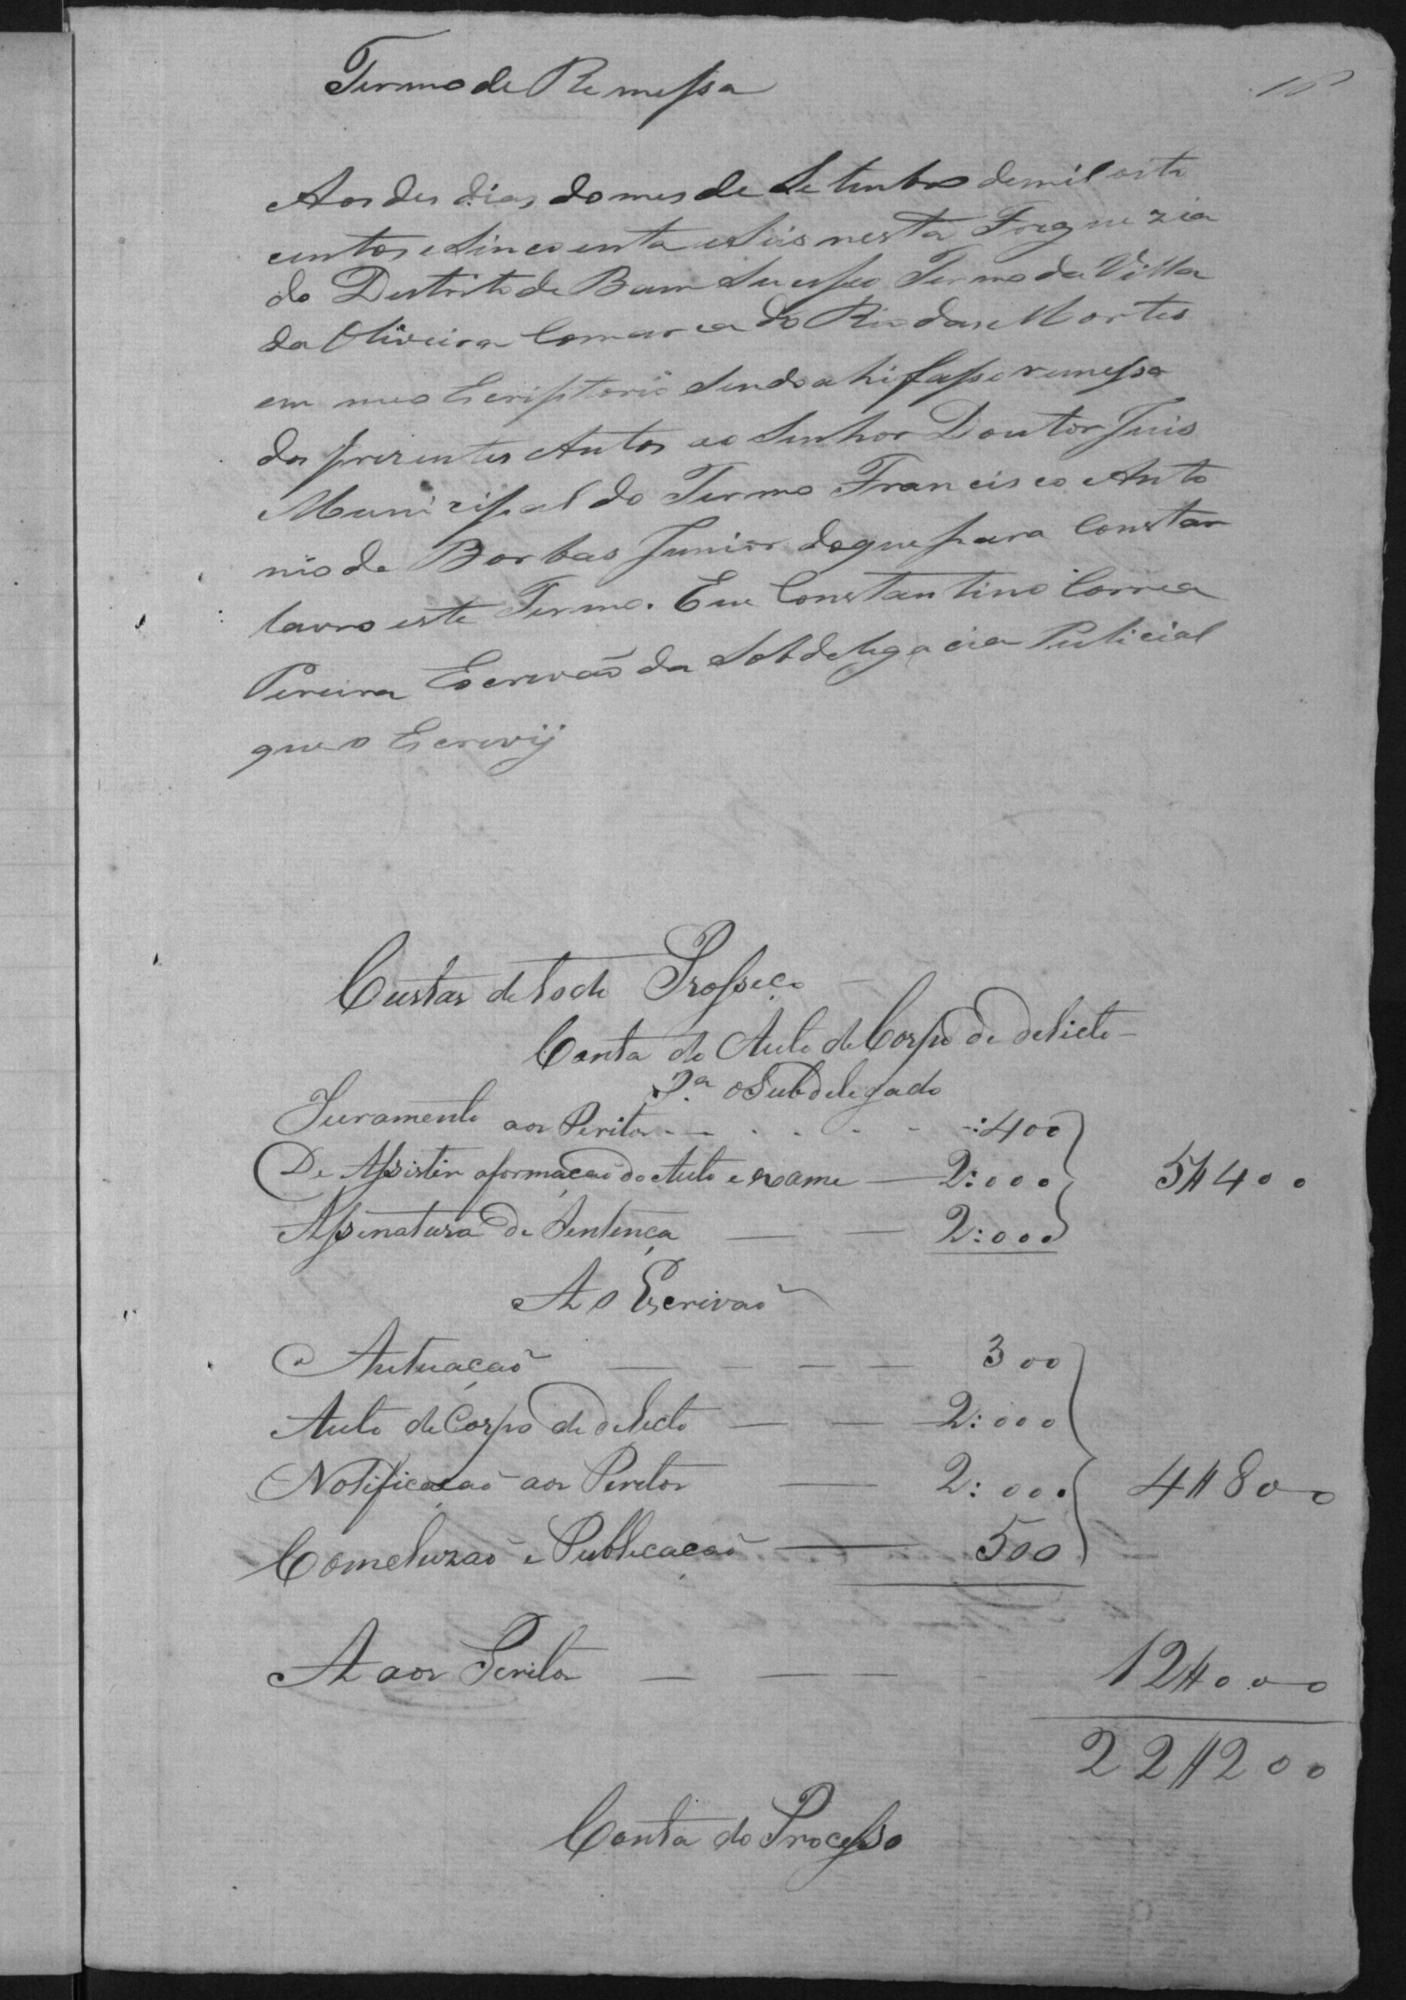 Termo de Remessa
Aos des dias do mes de Setembro de mil oito
centos e Sincoenta e Seis nesta Freguezia
do Destrito de Bom Sucesso Termo da Villa
da Oliveira Comarca do Rio das Mortes
em meo Escriptorio Sendo ahi fasso remessa
dos prezentes Autos ao Senhor Doutor Juis
Municipal do Termo Francisco Anto
nio de Borbas Junior do que para Constar
lavro este Termo. Eu Constantino Correa
Pereira Escrivaõ da Sobdelegacia Pulicial
que o Escrevij
Custas de todo Prosseço
Conta do Auto de Corpo de delicto
Pª. o Subdelegado
Juramento aos Peritos :400
De Assistir a formaçaõ do Auto e exame 2:000 5#400
Assinatura de Sentença 2:000
Ao Escrivaõ
Autuaçaõ 300
Auto de Corpo de delicto 2:000
Notificaçaõ aos Peritos 2:000 4#800
Comcluzaõ e Publicaçaõ 500
A aos Peritos 12#000
22#200
Conta do Processo